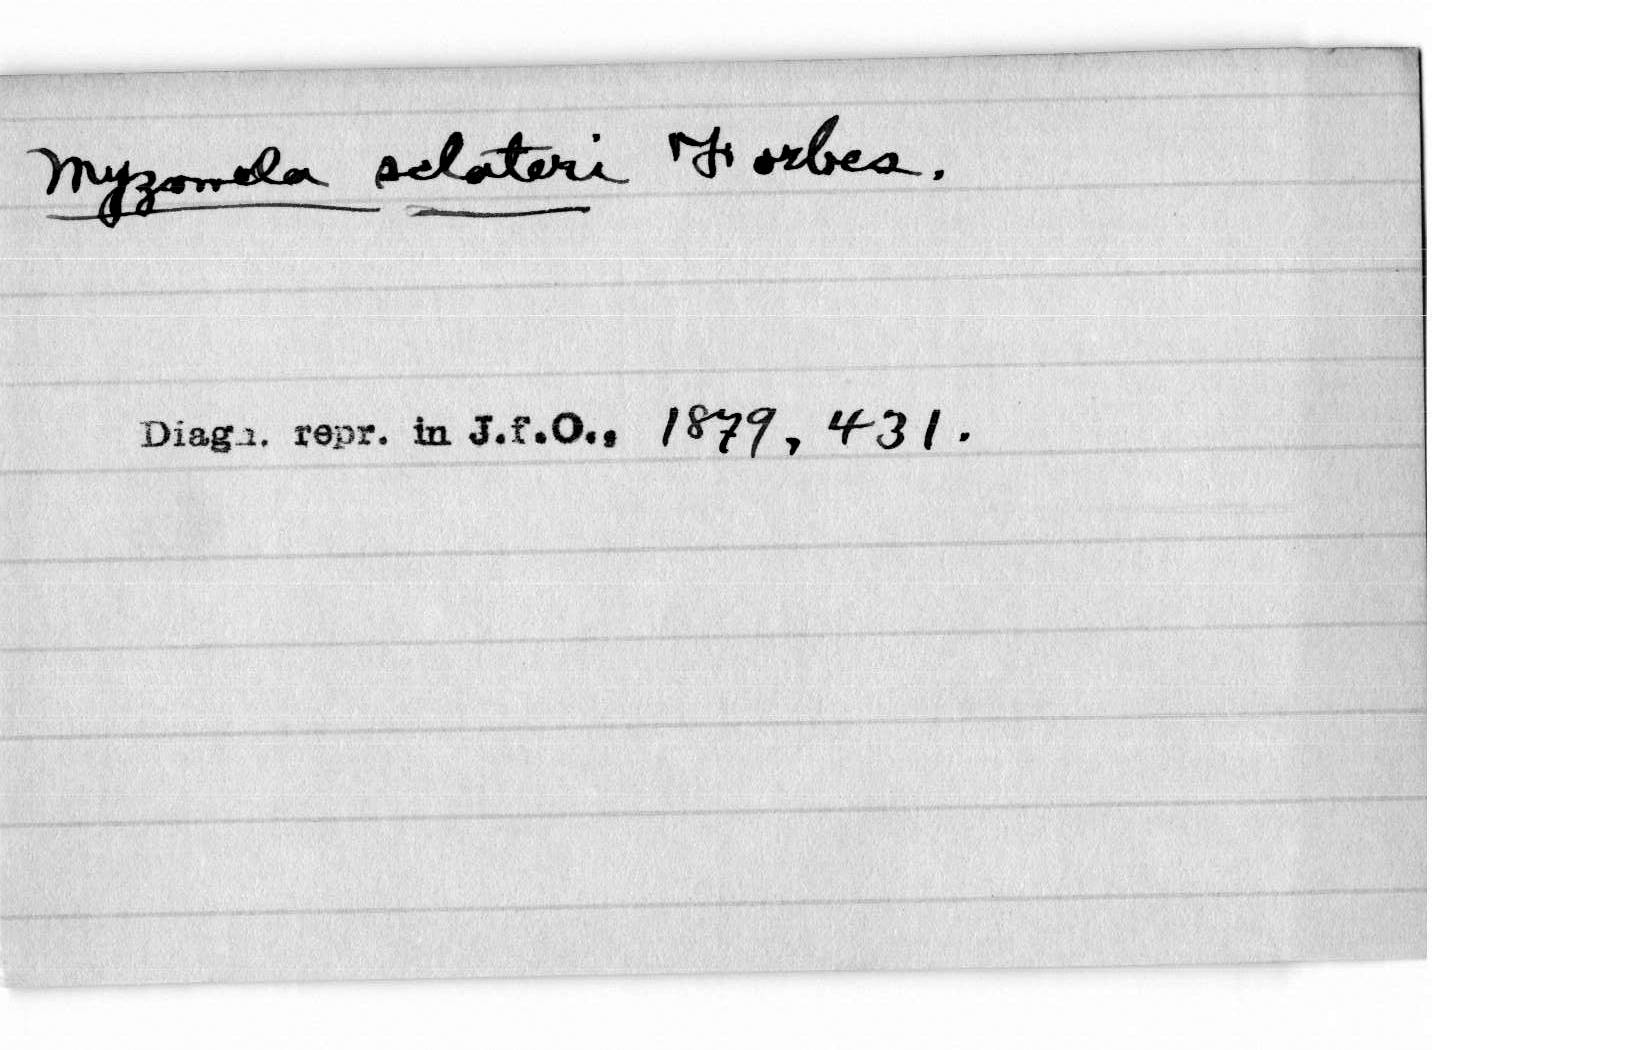 Myzomela sclateri Forbes.
Diagn. repr. in J.f.O., 1879, 431.